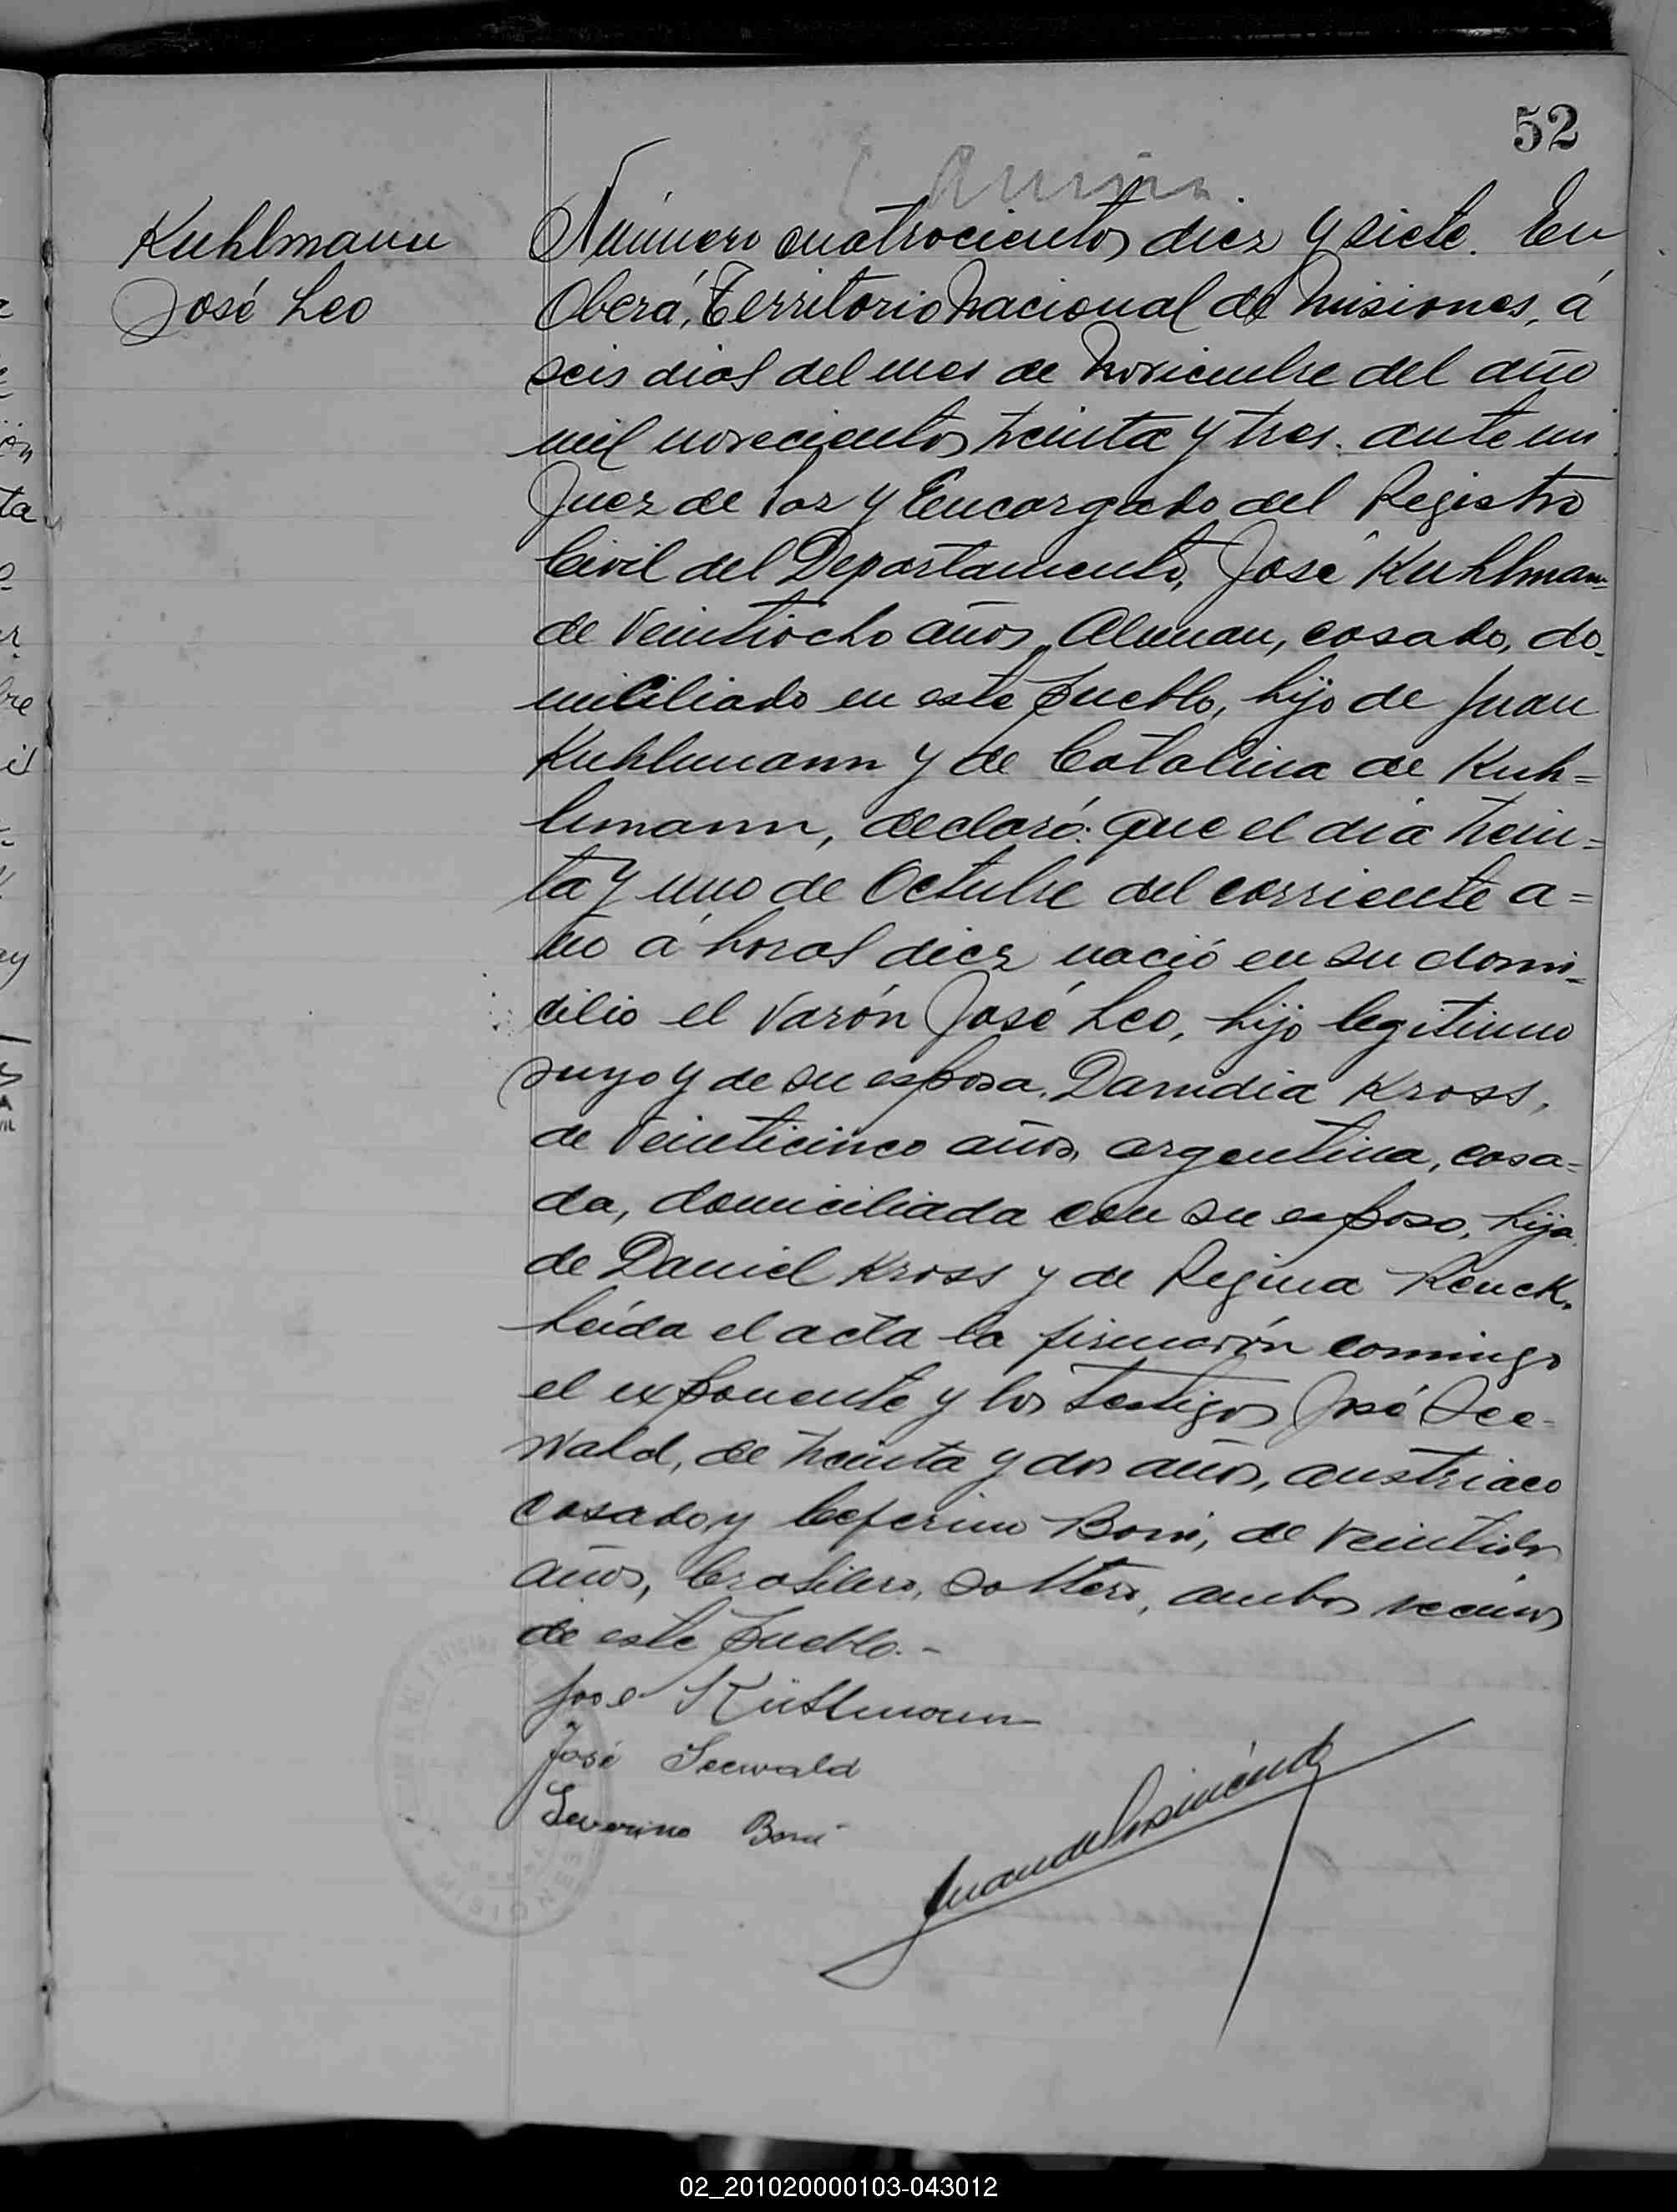 52
Kuhlmann
José Leo
Número cuatrocientos diez y siete. En
Oberá, Territorio Nacional de Misiones, á
seis dias del mes de Noviembre del año
mil novecientos treinta y tres. ante mi
Juez de Paz y Encargado del Registro
Civil del Departamento, José Kuhlmann
de veintiocho años, Aleman, casado, do-
miciliado en este pueblo, hijo de Juan
Kuhlmann y de Catalina de Kuh=
lmann, declaró: Que el dia trein=
ta y uno de Octubre del corriente a=
ño á horas diez nació en su domi-
cilio el varón José Leo, hijo legitimo
suyo y de su esposa, Danidia Kross,
de veinticinco años, argentina, casa=
da, domiciliada con su esposo, hija
de Daniel Kross y de Regina Renck.
Leída el acta la firmarón conmigo
el exponente y los testigos José See-
wald, de treinta y dos años, austriaco
casado, y Ceferino Boni, de veintidos
años, brasilero, soltero, ambos vecinos
de este pueblo.-
José Kühlmann
José Seewald
Severino Boni
02_201020000103-043012